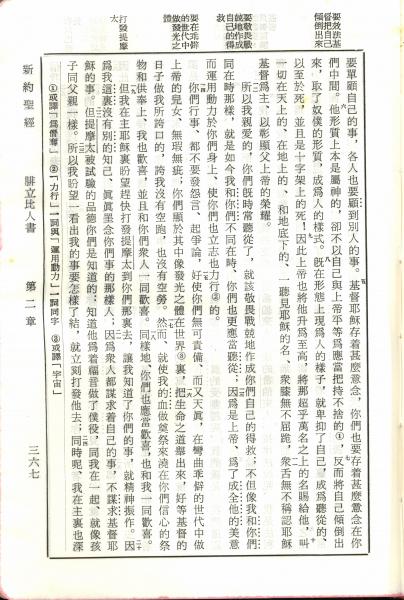 要效法基
督把自己
傾倒出來
要敬畏戰
兢地作成
自己的得
救
要在乖僻
的世代中
做發光之
體
打發提摩
太
要單顧自己的事，各人也要顧到別人的事。基督耶穌存着甚麼意念，你們也要存着甚麼意念在你
們中間。他形質上本是屬神的，卻不以自己與上帝平等爲應當把持不捨的①，反而將自己傾倒出
來，取了奴僕的形質，成爲人的樣式。旣在形態上現爲人的樣子，就卑抑了自己，成爲聽從的、
以至於死，並且是十字架上的死！因此上帝也將他升爲至高，將那超乎萬名之上的名賜給他，叫
一切在天上的、在地上的、和地底下的、一聽見耶穌的名、衆膝無不屈跪，衆舌無不稱認耶穌
基督爲主，以彰顯父上帝的榮耀。
所以我親愛的，你們旣時常聽從了，就該敬畏戰兢地作成你們自己的得救；不但像我和你們
同在時那樣，就是如今我和你們不同在時，你們也更應當聽從；因爲是上帝、爲了成全他的美意
而運用動力於你們身上、使你們也立志也力行②的。
你們行事、都不要發怨言、起爭論，好使你們無可責備、而又天眞，在彎曲乖僻的世代中做
上帝的兒女、無瑕無疵；你們顯於其中像發光之體在世界③裏，把生命之道舉出來，好等基督的
日子做我所誇口的，誇我沒有空跑，也沒有空勞。然而、就使我的血做奠祭來澆在你們信心的祭
物和供奉上、我也歡喜，並且和你們衆人一同歡喜。同樣地、你們也應當歡喜，也和我一同歡喜。
但我在主耶穌裏盼望趕快打發提摩太到你們那裏去，讓我知道了你們的事，就精神振作。因
爲我這裏沒有別的知己、眞眞罣念你們事的那樣人；因爲衆人都謀求着自己的事，不謀求基督耶
穌的事。但提摩太被試驗的品德你們是知道的；知道他爲着福音做了僕役，同我在一起、就像孩
子同父親一樣。所以我盼望一看出我的事要怎樣了結，就立刻打發他去；同時呢、我在主裏也深
①或譯『爲僭奪』 ②『力行』一詞與『運用動力』一詞同字 ③或譯『宇宙』
新約聖經 腓立比人書 第二章 三六七